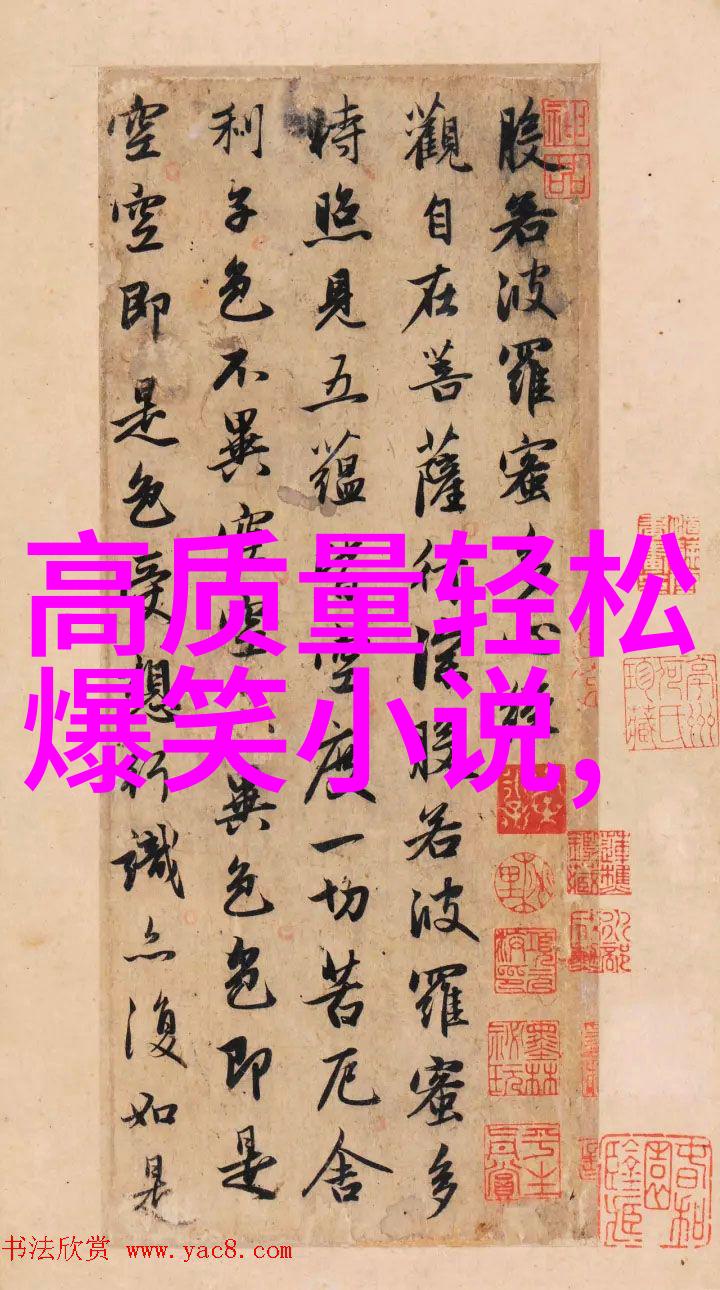 神品
般若波羅蜜多心經
觀自在菩薩行深般若波羅蜜多
時照見五蘊皆空度一切苦厄舍
利子色不異空空不異色色即是
空空即是色受想行識亦復如是
高质量轻松
爆笑小说,
书法欣赏 www.yac8.com